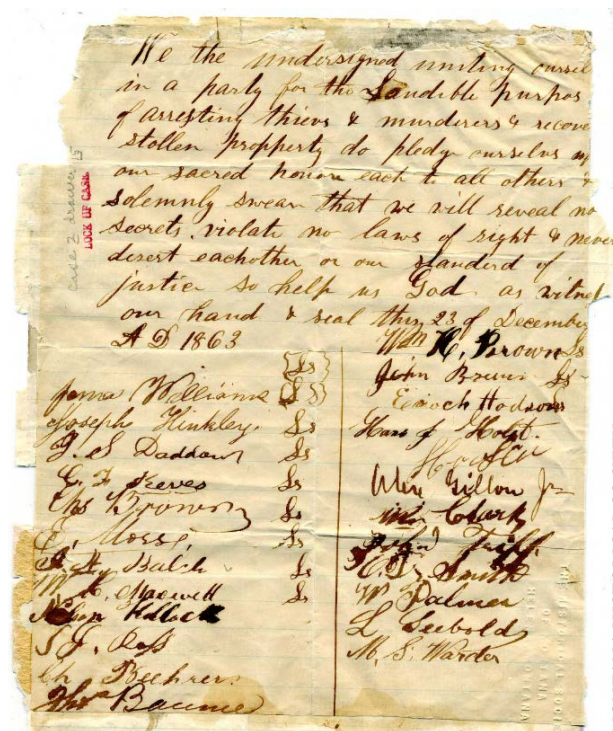 We the undersigned uniting oursel
in a party for the Laudible purpos
of arresting thievs & murderers & recove
stollen propperty do pledge ourselvs
our sacred honor each to all others &
solemnly swear that we will reveal no
secrets, violate no laws of right & never
desert eachother or our standerd of
justice so help us God as witnes
our hand & seal this 23 of December
A D 1863
James Williams {Ls}
Joseph Hinkley Ls
J. S Daddow Ls
C. F Keeves Ls
Chs Brown Ls
E. Morse Ls
Balch Ls
W. Maxwell Ls
Nelson Kellock
S. J. Ross
Ch Beehrer
Thos Baume
Wm H. Brown Ls
John Brown Ls
Enoch Hodson
Hans J Holst
Alex Gillon Jr
Wm Clark
John Triff
C. D. Smith
W Palmer
L Seebold
M. S. Warder
case 2 drawer 15
LOCK UP CASE